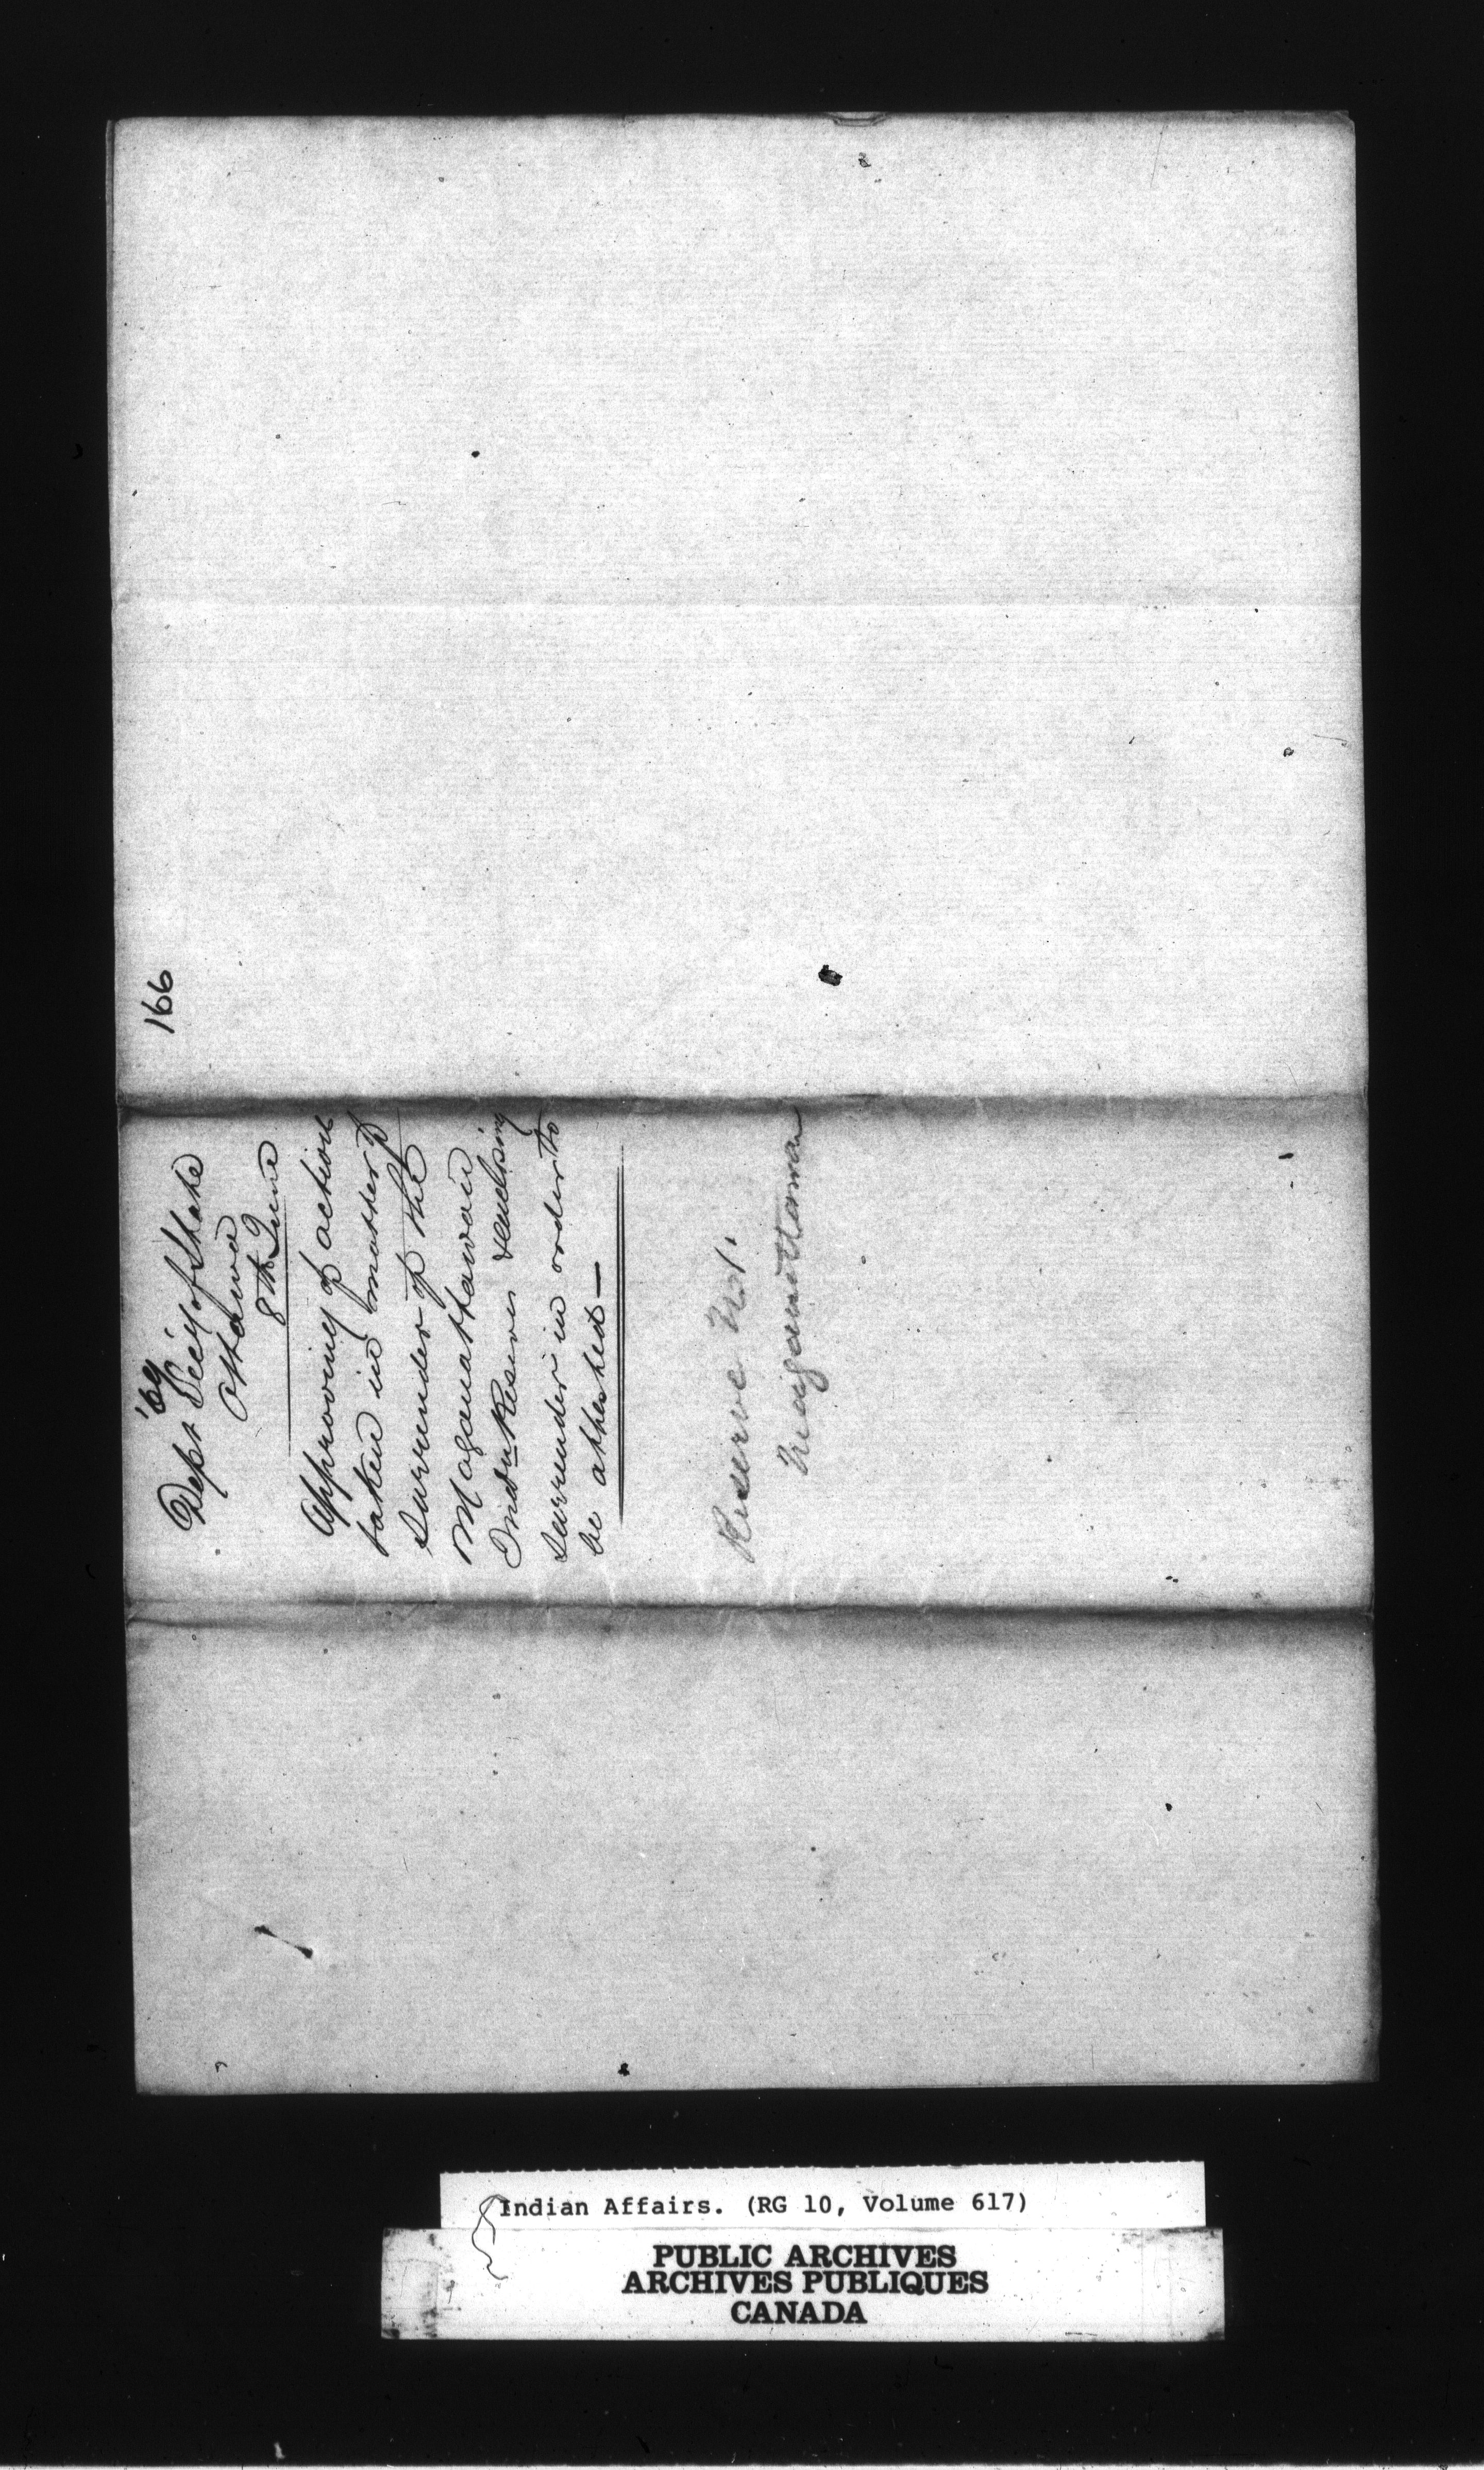 166
'69
Dept Sec'y of State
Ottawa
8th June
Approving of action
taken in matter of
Surrender of the
Maganattawan
Indn Reserve sending
Surrender in order to
be attested —
Reserve No 1.
Maganattawan
Indian Affairs. (RG 10, Volume 617)
PUBLIC ARCHIVES
ARCHIVES PUBLIQUES
CANADA